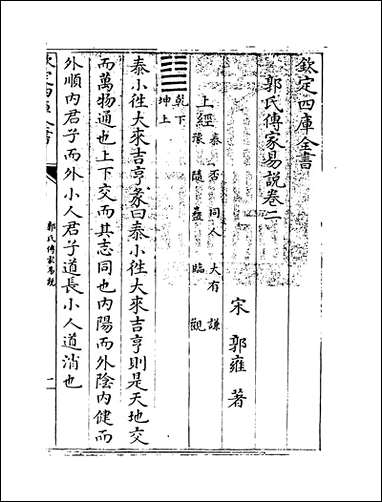 欽定四庫全書
郭氏傳家易說卷二
宋 郭雍 著
上經
泰 否 同人 大有 謙
豫 隨 蠱 臨 觀
乾下
坤上
泰小徃大來吉亨彖曰泰小徃大來吉亨則是天地交
而萬物通也上下交而其志同也内陽而外陰内健而
外順内君子而外小人君子道長小人道消也
欽定四庫全書
郭氏傳家易說
一